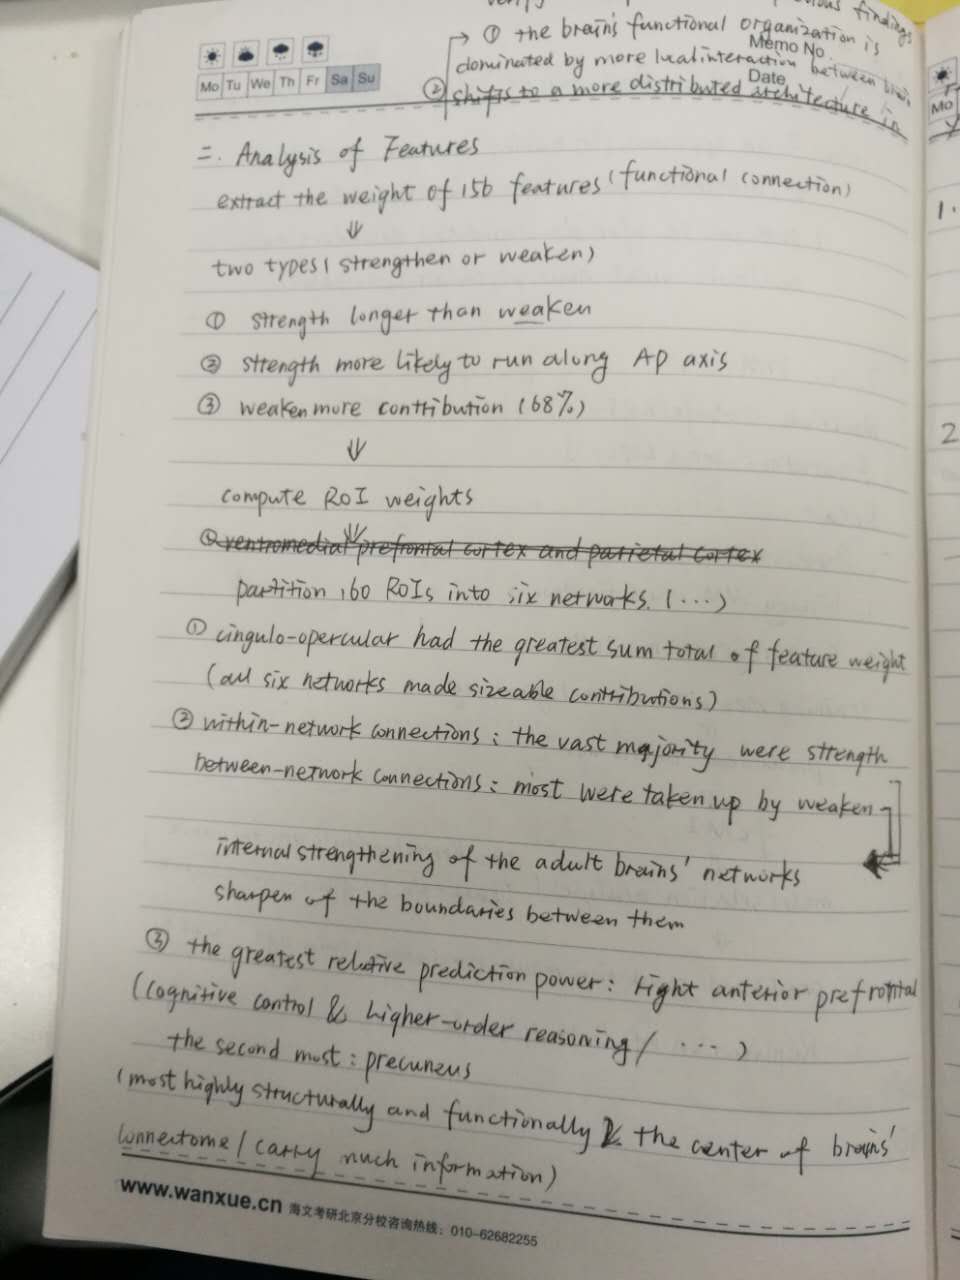 verify
findings
→ ① the brain's functional organization is
Memo No.
dominated by more local interaction between brain
Mo Tu We Th Fr Sa Su
Date
② shifts to a more distributed architecture in
二. Analysis of Features
extract the weight of 156 features (functional connection)
⇓
two types ( strengthen or weaken)
① strength longer than weaken
② strength more likely to run along AP axis
③ weaken more contribution (68%)
⇓
compute ROI weights
⇓
① ventromedial prefrontal cortex and parietal cortex
partition 160 ROIs into six networks. (...)
① cingulo-opercular had the greatest sum total of feature weight
(all six networks made sizeable contributions)
② within-network connections: the vast majority were strength
between-network connections: most were taken up by weaken
internal strengthening of the adult brains' networks
sharpen of the boundaries between them
③ the greatest relative prediction power: right anterior prefrotntal
(cognitive control & higher-order reasoning/ ...)
the second most: precuneus
(most highly structurally and functionally & the center of brains'
connectome / carry much information)
www.wanxue.cn 海文考研北京分校咨询热线：010-62682255
Mo
1.
2